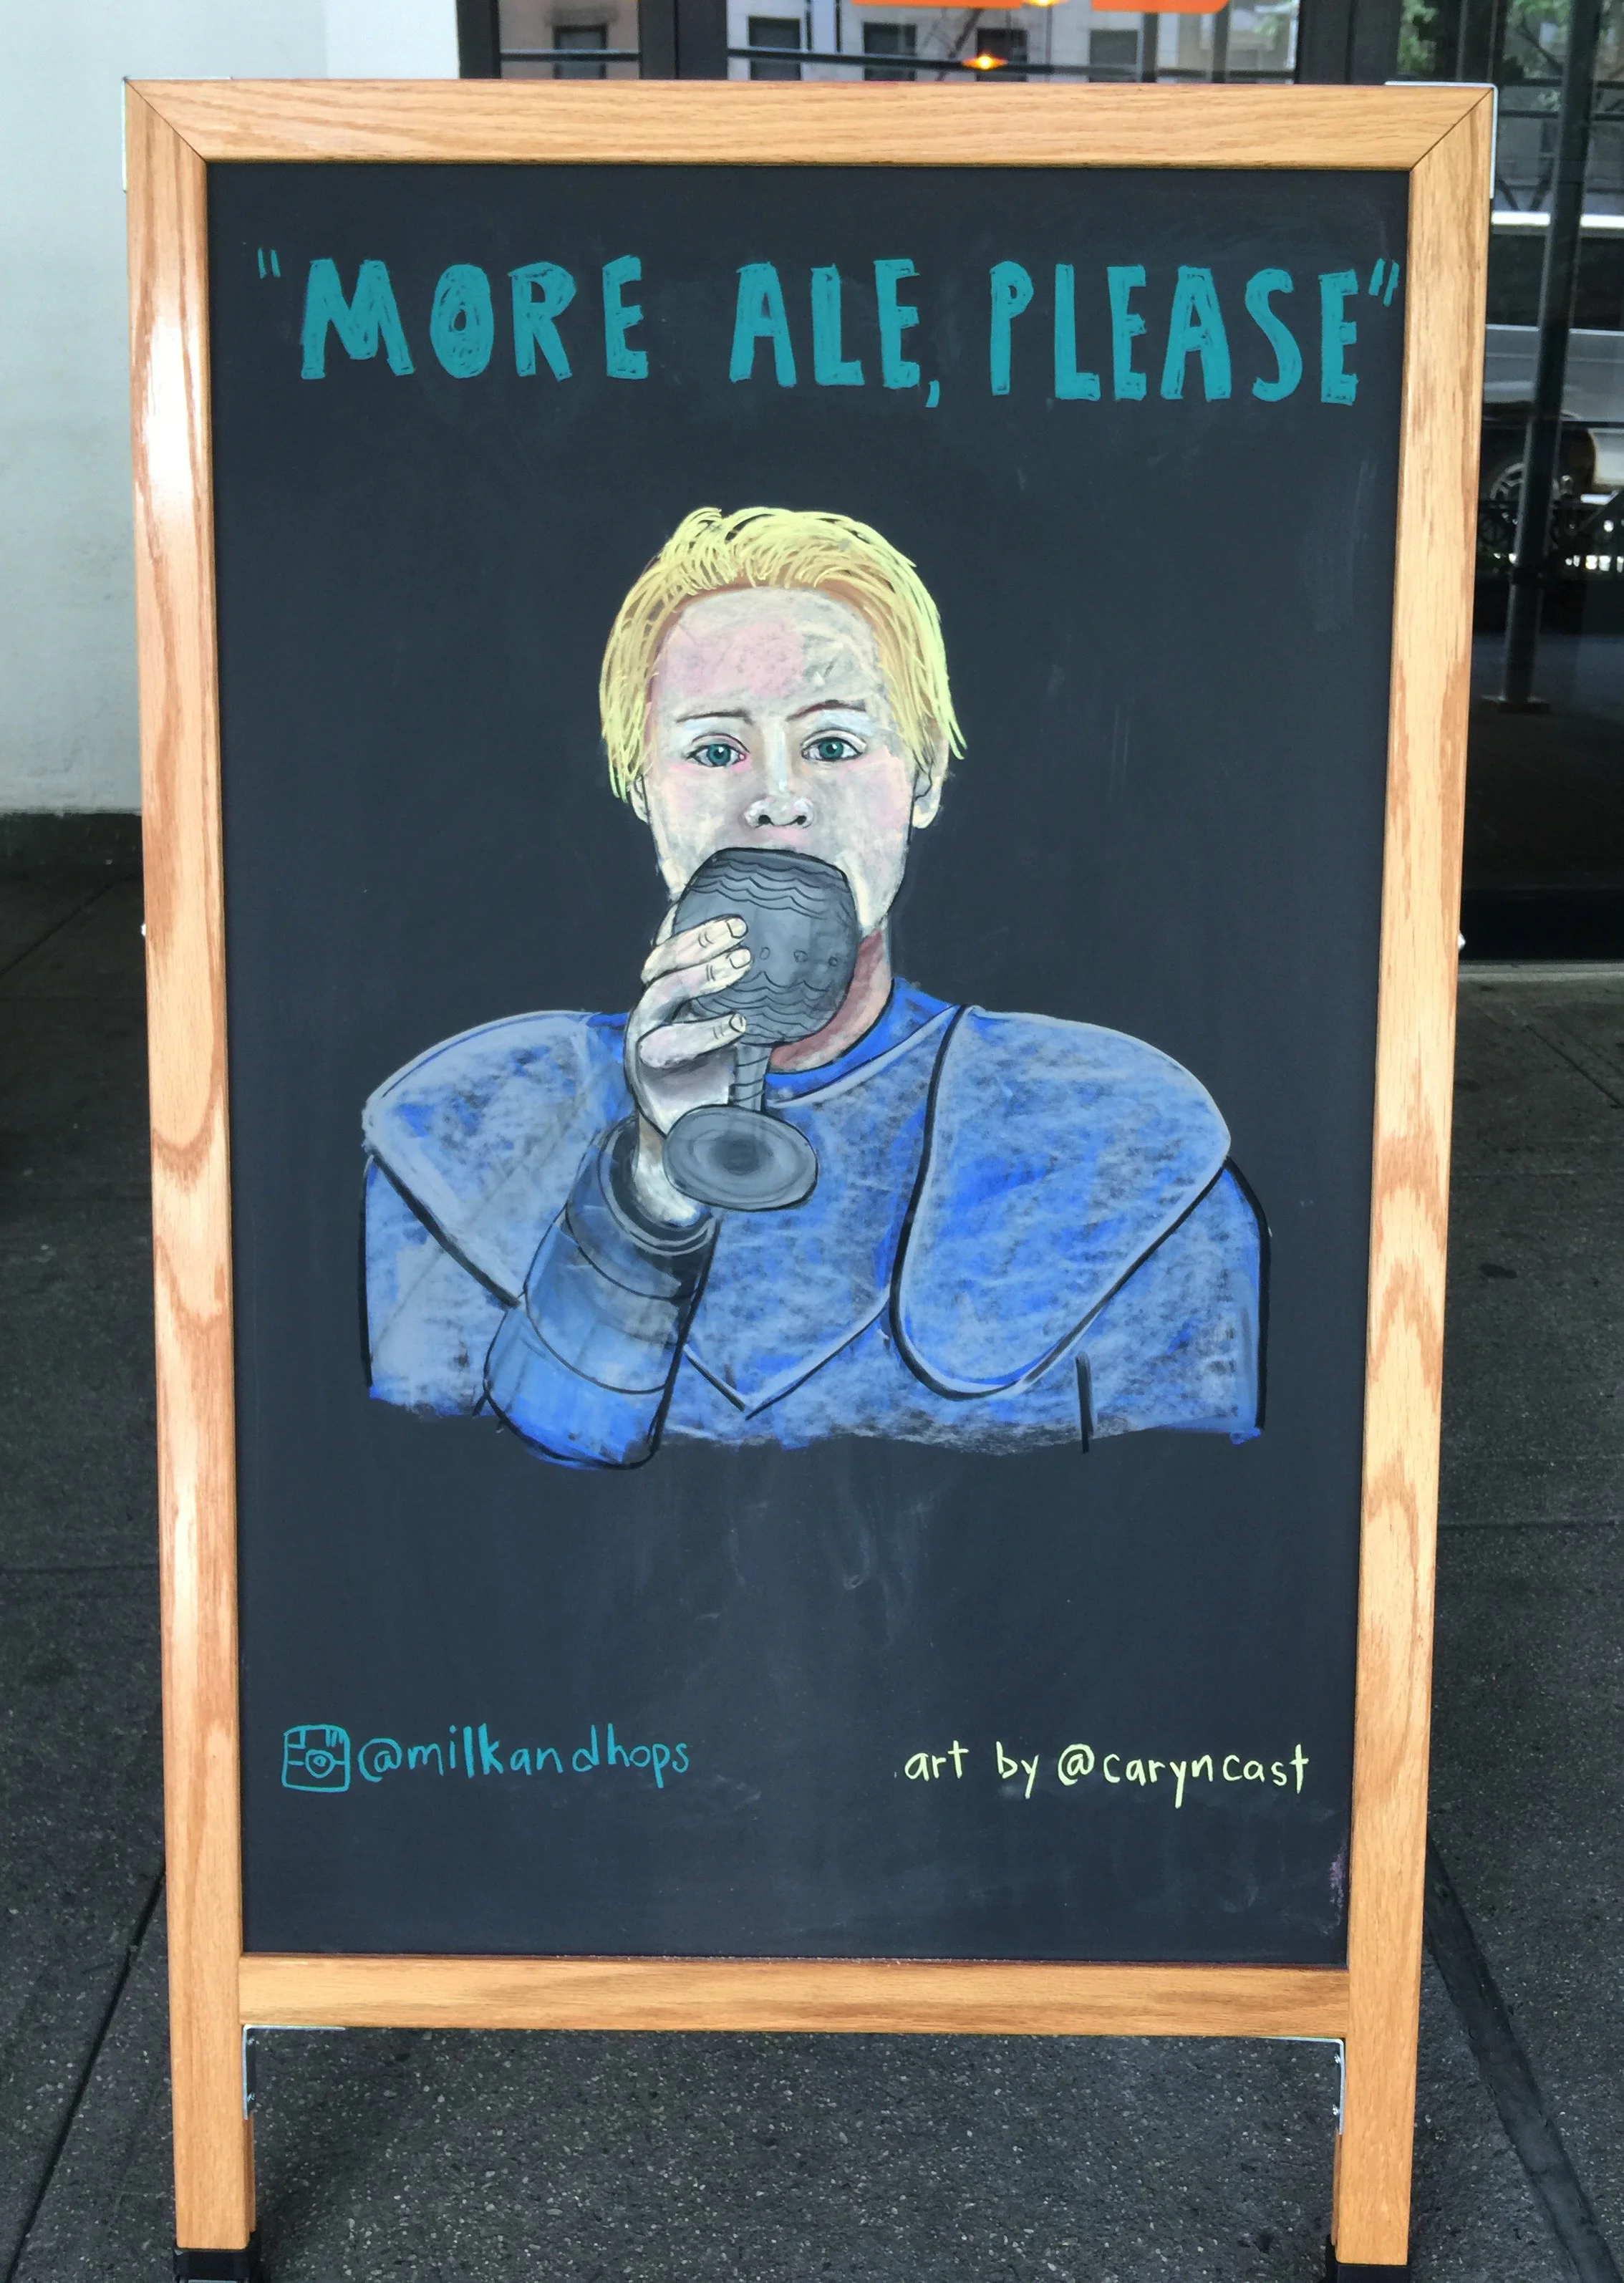 "MORE ALE, PLEASE"
@milkandhops
art by @caryncast